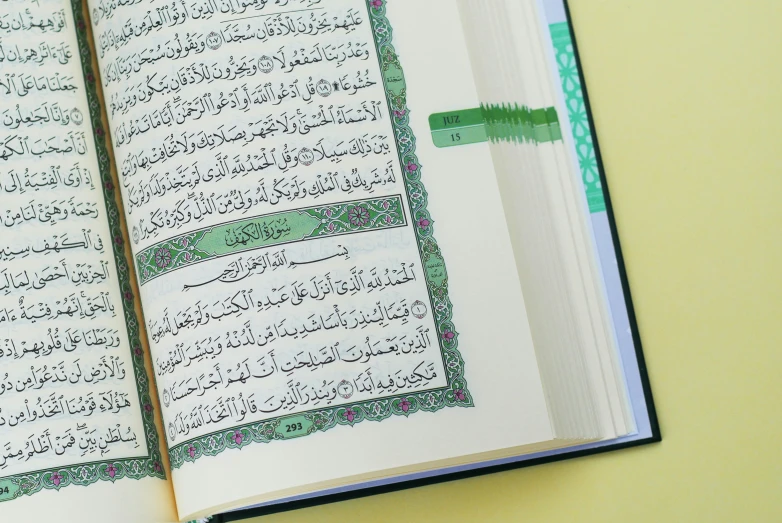 تُؤْمِنُوٓا۟ إِنَّ ٱلَّذِينَ أُوتُوا۟ ٱلْعِلْمَ مِن قَبْلِهِۦٓ إِذَا
عَلَيْهِمْ يَخِرُّونَ لِلْأَذْقَانِ سُجَّدًا ١٠٧ وَيَقُولُونَ سُبْحَـٰنَ رَبِّنَآ إِن
وَعْدُ رَبِّنَا لَمَفْعُولًا ١٠٨ وَيَخِرُّونَ لِلْأَذْقَانِ يَبْكُونَ وَيَزِيدُهُمْ
خُشُوعًا ۩ ١٠٩ قُلِ ٱدْعُوا۟ ٱللَّهَ أَوِ ٱدْعُوا۟ ٱلرَّحْمَـٰنَ أَيًّا مَّا تَدْعُوا۟ فَلَهُ
ٱلْأَسْمَآءُ ٱلْحُسْنَىٰ وَلَا تَجْهَرْ بِصَلَاتِكَ وَلَا تُخَافِتْ بِهَا وَٱبْتَغِ
بَيْنَ ذَٰلِكَ سَبِيلًا ١١٠ وَقُلِ ٱلْحَمْدُ لِلَّهِ ٱلَّذِى لَمْ يَتَّخِذْ وَلَدًا وَلَمْ يَكُن
لَّهُۥ شَرِيكٌ فِى ٱلْمُلْكِ وَلَمْ يَكُن لَّهُۥ وَلِىٌّ مِّنَ ٱلذُّلِّ وَكَبِّرْهُ تَكْبِيرًا
سُورَةُ الكَهْفِ
بِسْمِ ٱللَّهِ ٱلرَّحْمَـٰنِ ٱلرَّحِيمِ
ٱلْحَمْدُ لِلَّهِ ٱلَّذِىٓ أَنزَلَ عَلَىٰ عَبْدِهِ ٱلْكِتَـٰبَ وَلَمْ يَجْعَل لَّهُۥ عِوَجَا
١ قَيِّمًا لِّيُنذِرَ بَأْسًا شَدِيدًا مِّن لَّدُنْهُ وَيُبَشِّرَ ٱلْمُؤْمِنِينَ
ٱلَّذِينَ يَعْمَلُونَ ٱلصَّـٰلِحَـٰتِ أَنَّ لَهُمْ أَجْرًا حَسَنًا
مَّـٰكِثِينَ فِيهِ أَبَدًا ٣ وَيُنذِرَ ٱلَّذِينَ قَالُوا۟ ٱتَّخَذَ ٱللَّهُ وَلَدًا
293
JUZ
15
أَفْوَٰهِهِمْ إِن
عَلَىٰٓ ءَاثَـٰرِهِمْ إِن
جَعَلْنَا مَا عَلَى
وَإِنَّا لَجَـٰعِلُونَ
أَنَّ أَصْحَـٰبَ ٱلْكَهْفِ
إِذْ أَوَى ٱلْفِتْيَةُ إِلَى
رَحْمَةً وَهَيِّئْ لَنَا مِنْ
فِى ٱلْكَهْفِ سِنِينَ
ٱلْحِزْبَيْنِ أَحْصَىٰ لِمَا
بِٱلْحَقِّ إِنَّهُمْ فِتْيَةٌ
وَرَبَطْنَا عَلَىٰ قُلُوبِهِمْ إِذْ
وَٱلْأَرْضِ لَن نَّدْعُوَا۟ مِن
هَـٰٓؤُلَآءِ قَوْمُنَا ٱتَّخَذُوا۟ مِن
بِسُلْطَـٰنٍۭ بَيِّنٍ فَمَنْ أَظْلَمُ مِمَّنِ
94